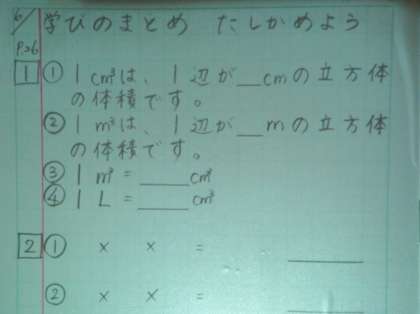 6/ 学びのまとめ たしかめよう
P.26
1 ① 1cm³は、1辺が__cmの立方体
の体積です。
② 1m³は、1辺が__mの立方体
の体積です。
③ 1m³=____cm³
④ 1L=____cm³
2 ① × × = ____
② × × =